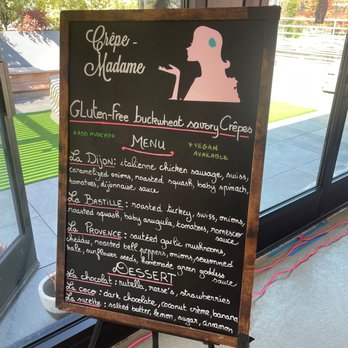 Crêpe -
Madame
Gluten-Free buckwheat savory Crêpes
+ ADD AVOCADO
MENU
* VEGAN
AVAILABLE
La Dijon: italienne chicken sausage, swiss,
caramelized onions, roasted squash, baby spinach,
tomatoes, dijonnaise sauce
La Bastille: roasted turkey, swiss, onions,
roasted squash, baby arugula, tomatoes, romesco
sauce
La Provence: sautéed garlic mushrooms
cheddar, roasted bell peppers, onions, seasonned
kale, sunflower seeds, homemade green goddess
sauce
DESSERT
La chocolat: nutella, reese's, strawberries
La coco: dark chocolate, coconut crème, banana
La suzette: salted butter, lemon, sugar, cinnamon